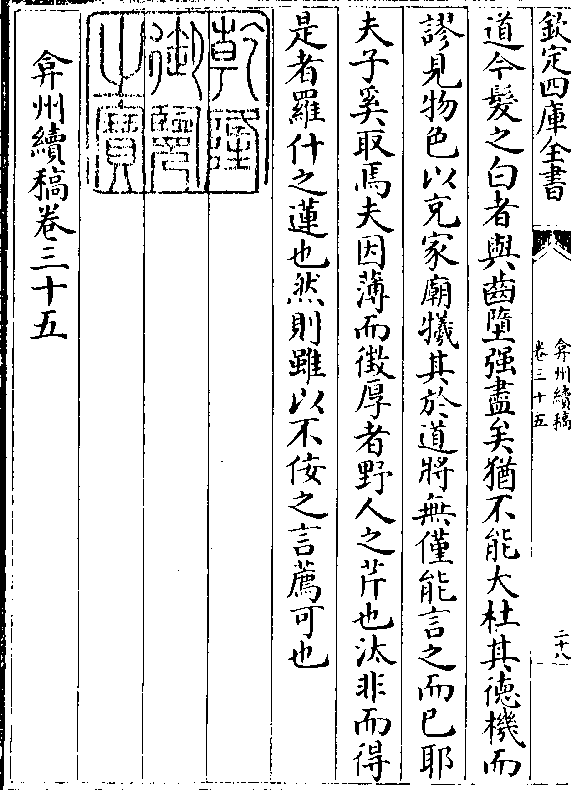 欽定四庫全書
弇州續稿
卷三十五
二十八
道今髮之白者與齒墮强盡矣猶不能大杜其徳機而
謬見物色以充家廟犧其於道將無僅能言之而已耶
夫子奚取焉夫因薄而徴厚者野人之芹也汰非而得
是者羅什之蓮也然則雖以不佞之言薦可也
乾隆
御覽
之寶
弇州續稿卷三十五